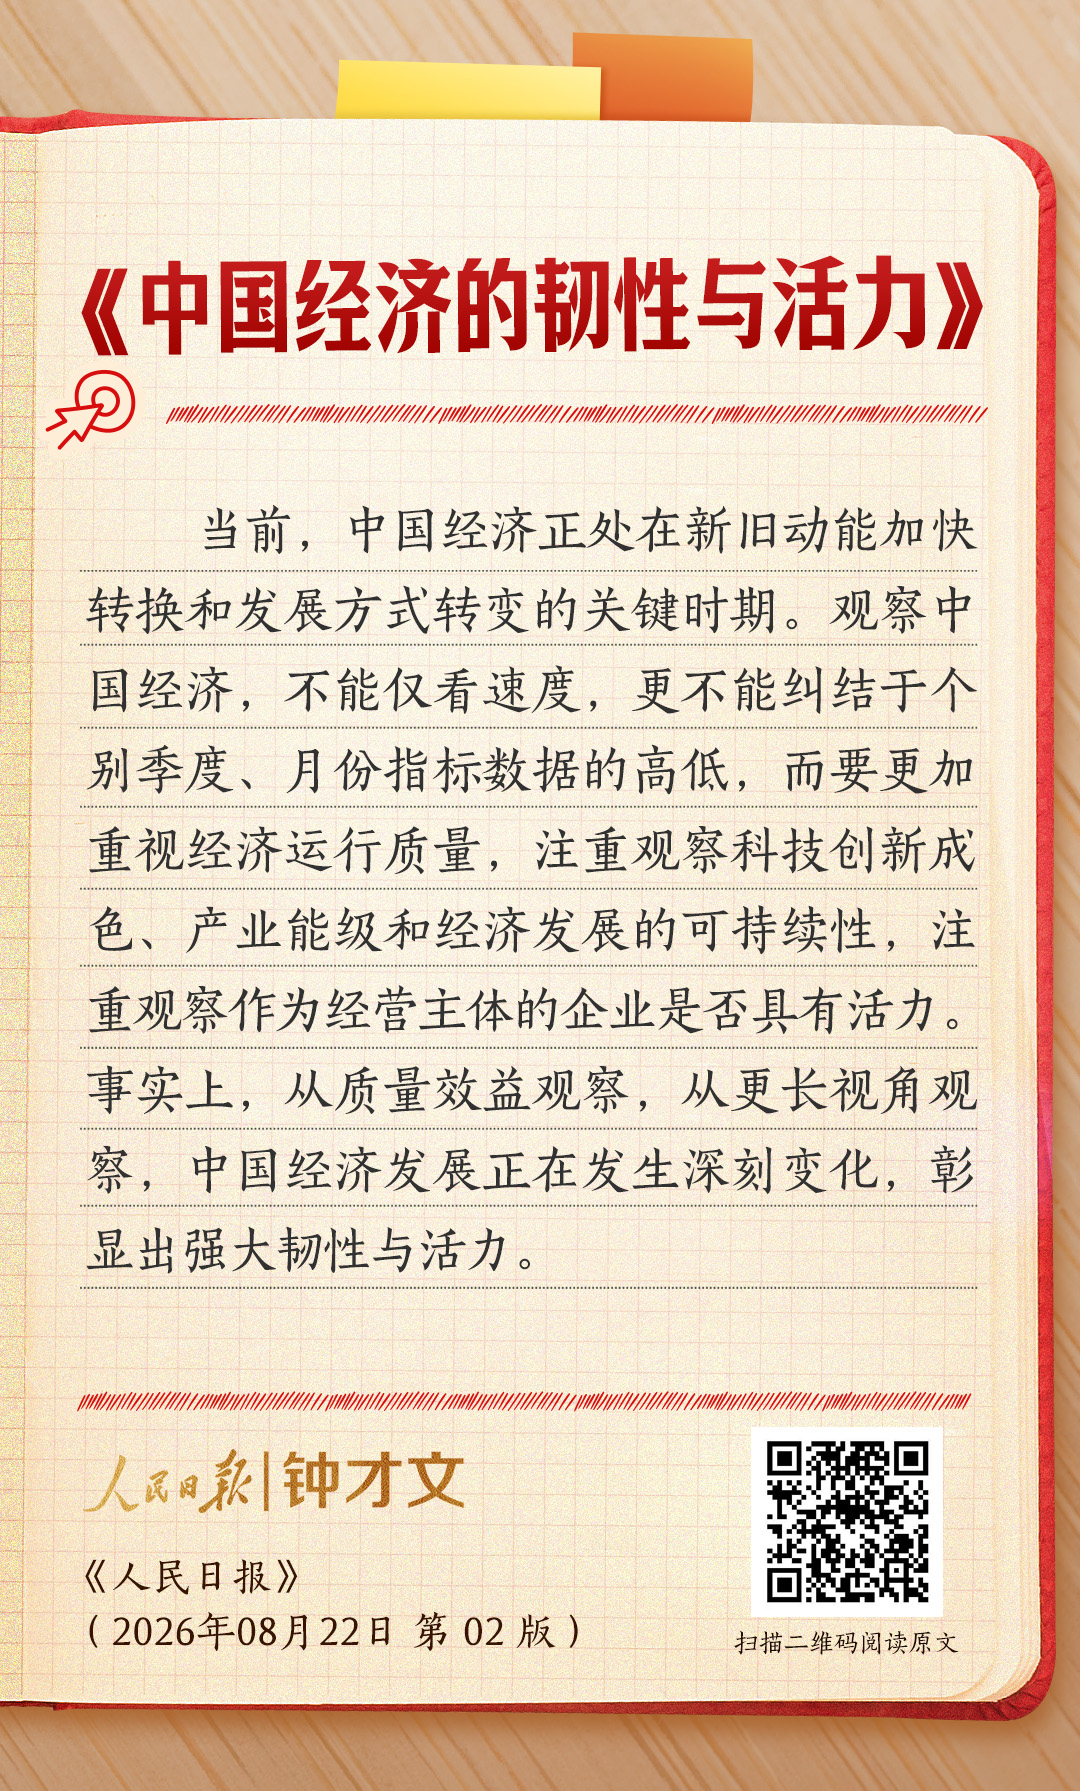 《中国经济的韧性与活力》
当前，中国经济正处在新旧动能加快
转换和发展方式转变的关键时期。观察中
国经济，不能仅看速度，更不能纠结于个
别季度、月份指标数据的高低，而要更加
重视经济运行质量，注重观察科技创新成
色、产业能级和经济发展的可持续性，注
重观察作为经营主体的企业是否具有活力。
事实上，从质量效益观察，从更长视角观
察，中国经济发展正在发生深刻变化，彰
显出强大韧性与活力。
人民日报|钟才文
《人民日报》
（2026年08月22日 第 02 版）
扫描二维码阅读原文